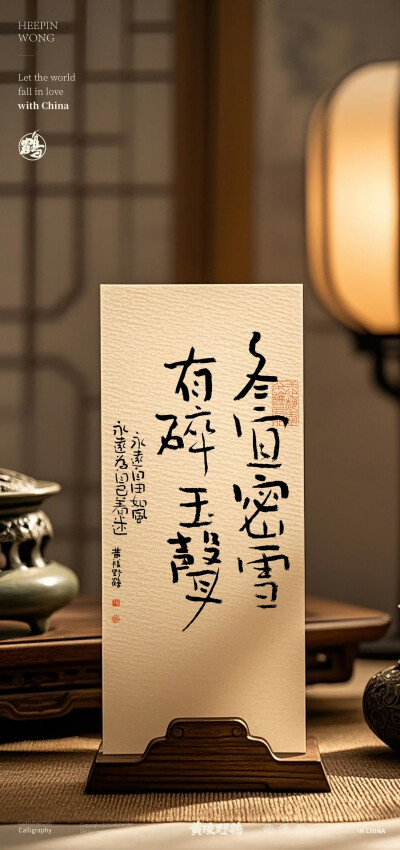 HEEPIN
WONG
Let the world
fall in love
with China
鹤
冬宜密雪
有碎玉聲
永遠自由如風
永遠為自己着迷
黄陵野鶴
Calligraphy
黄陵野鹤
IN CHINA